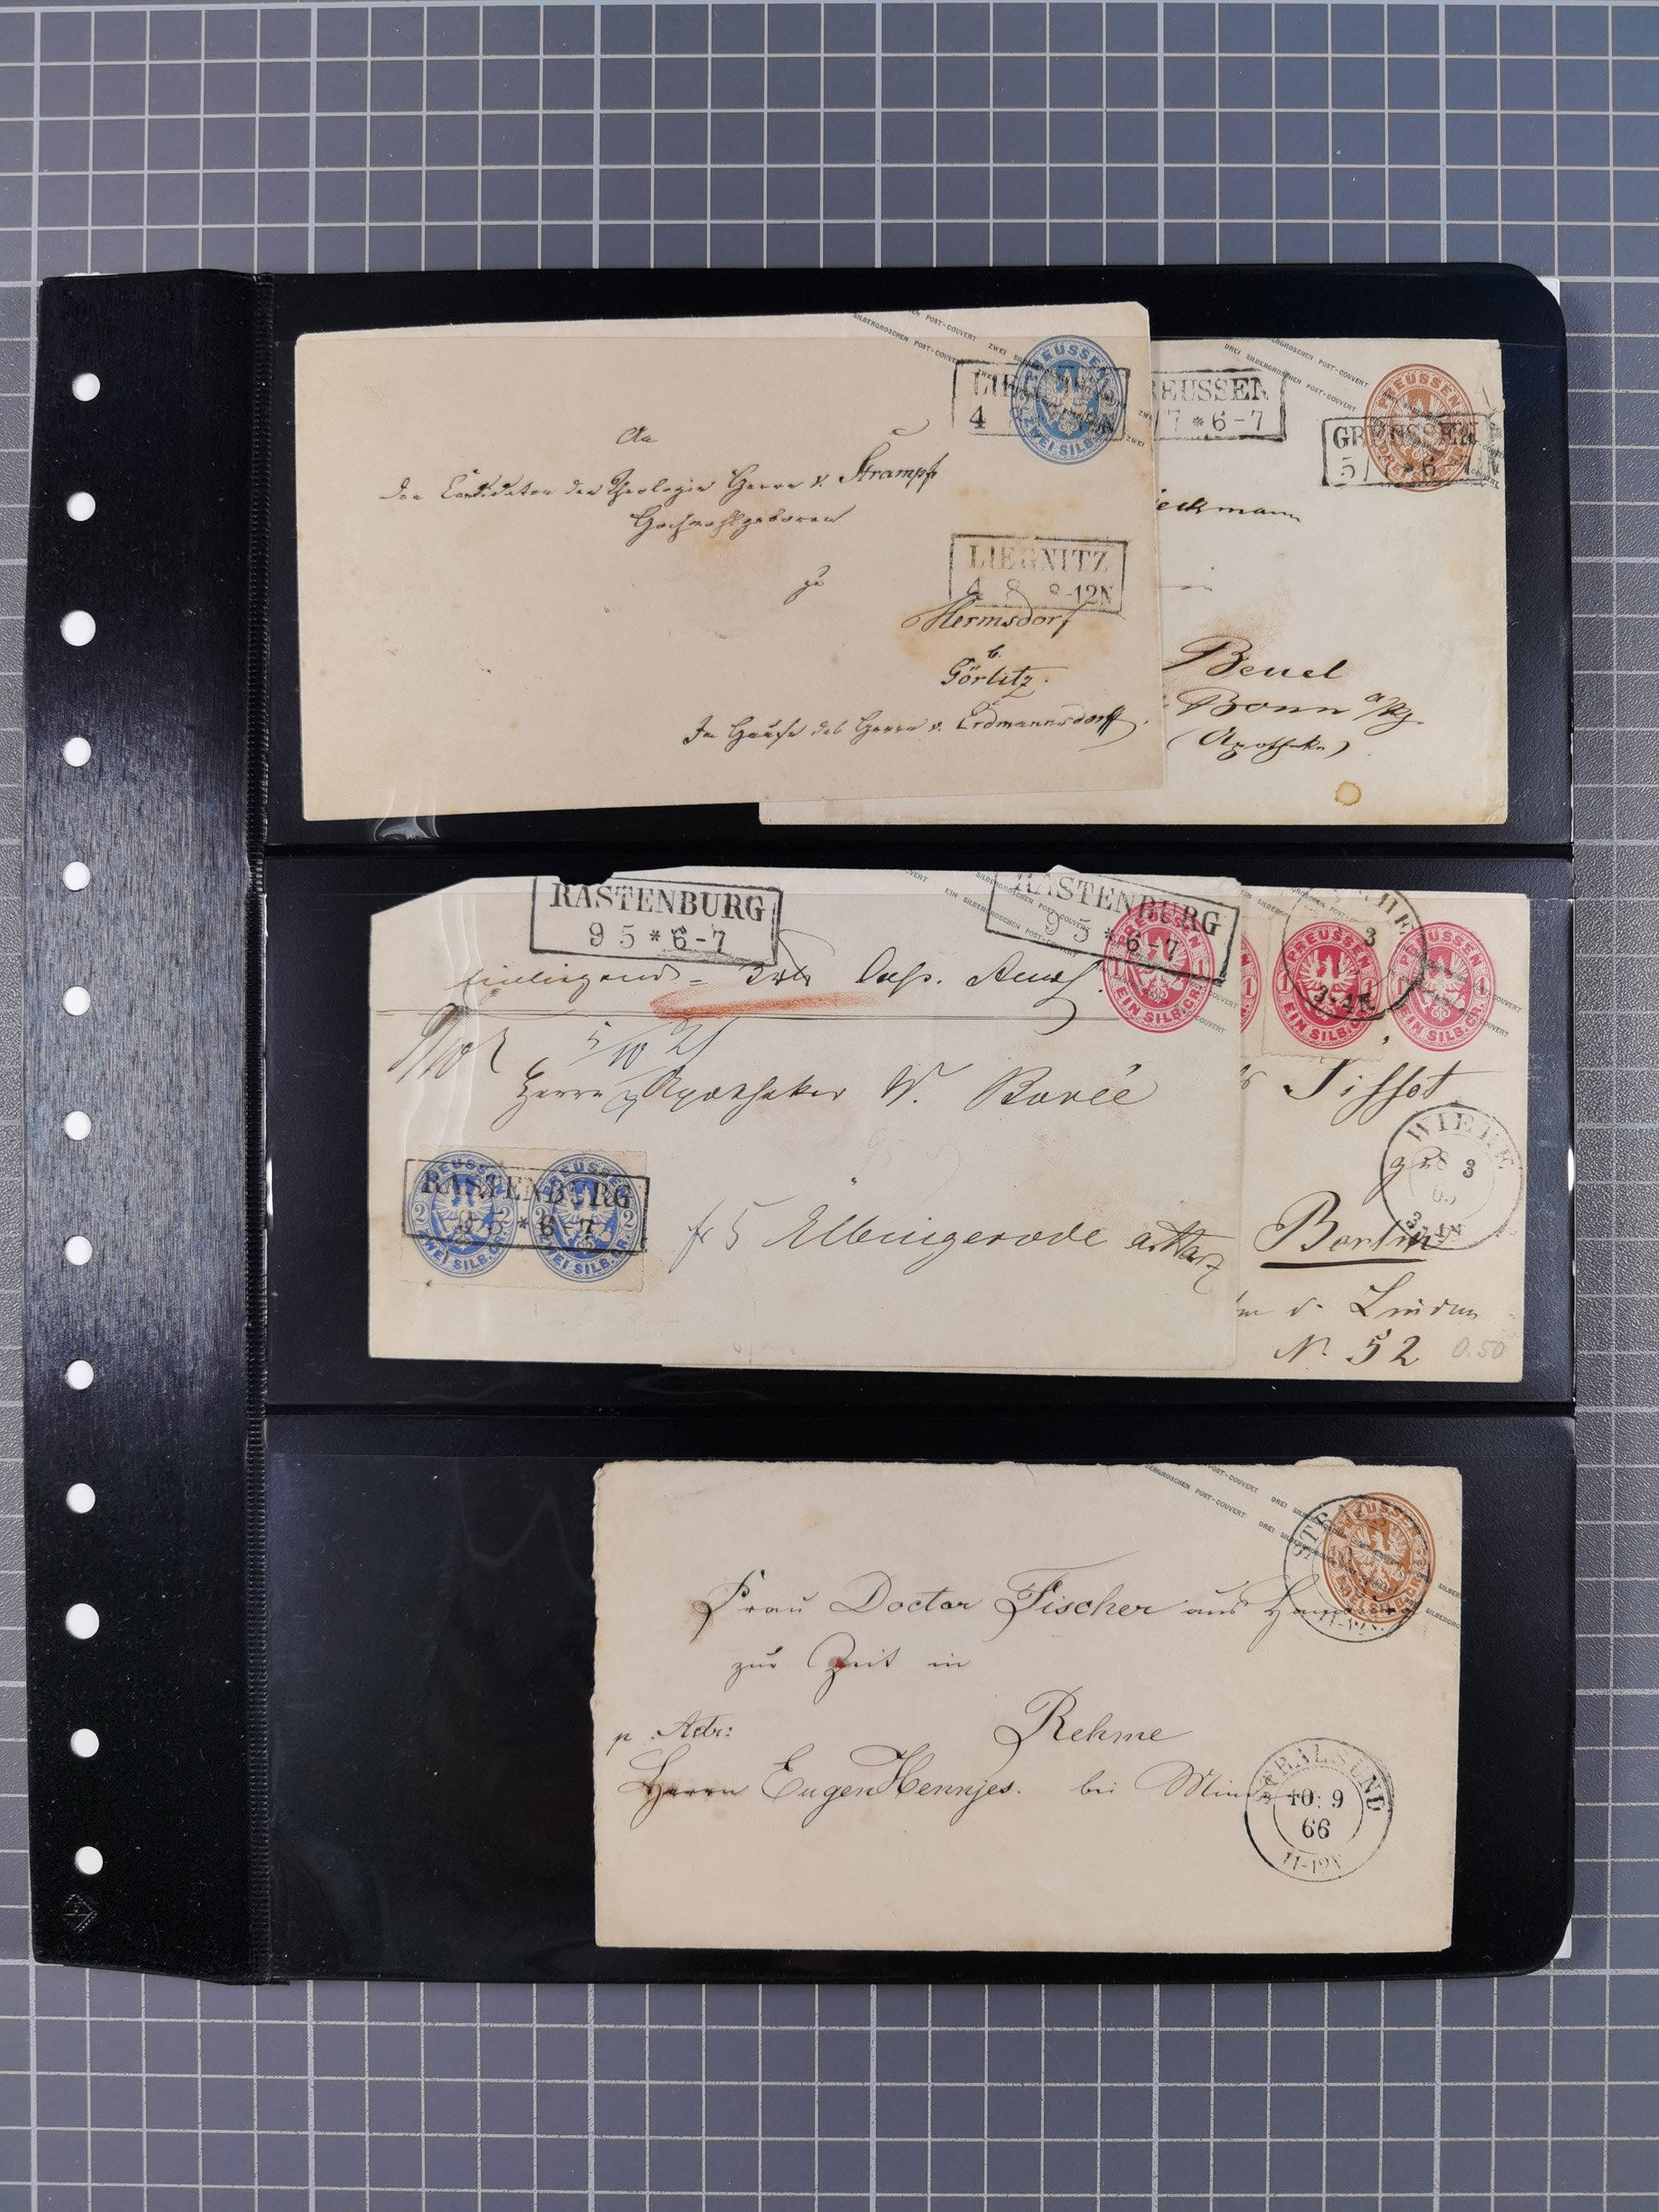 POST-COUVERT ZWEI
SILBERGROSCHEN POST-COUVERT ZWEI
PREUSSEN
ZWEI SILB.
LIEGNITZ
4
An
den Candidaten der Theologie Herrn v. Strampf
Hochwohlgeboren
zu
LIEGNITZ
4 8 8-12N
Hermsdorf
b.
Görlitz.
Im Hause des Herrn v. Erdmannsdorff.
SILBERGROSCHEN POST-COUVERT
DREI SILBERGROSCHEN POST-COUVERT
PREUSSEN
REUSSEN
7 * 6-7
GREUSSEN
5 7 * 6-7
eckmann
Beuel
Bonn a/Rh.
(Apotheke)
RASTENBURG
9 5 * 6-7
RASTENBURG
9 5 * 6-7
EIN SILBERGROSCHEN POST-COUVERT
PREUSSEN
1 1
EIN SILB.GR.
Herrn Apotheker W. Borée
PREUSSEN
2 2
ZWEI SILB.GR.
PREUSSEN
2 2
ZWEI SILB.GR.
RASTENBURG
9 5 * 6-7
fr 5 Elbingerode a. Harz
PREUSSEN
1 1
EIN SILB.GR.
PREUSSEN
1 1
EIN SILB.GR.
3
Tissot
WIEHE
3
Berlin
d. Linden
N. 52
0.50
SILBERGROSCHEN POST-COUVERT DREI
POST-COUVERT DREI SILBERGROSCHEN
PREUSSEN
Frau Doctor Fischer aus
zur Zeit in
Rehme
p. Adr:
Herrn Eugen Hennjes. bei Minden
STRALSUND
10: 9
66
11-12N